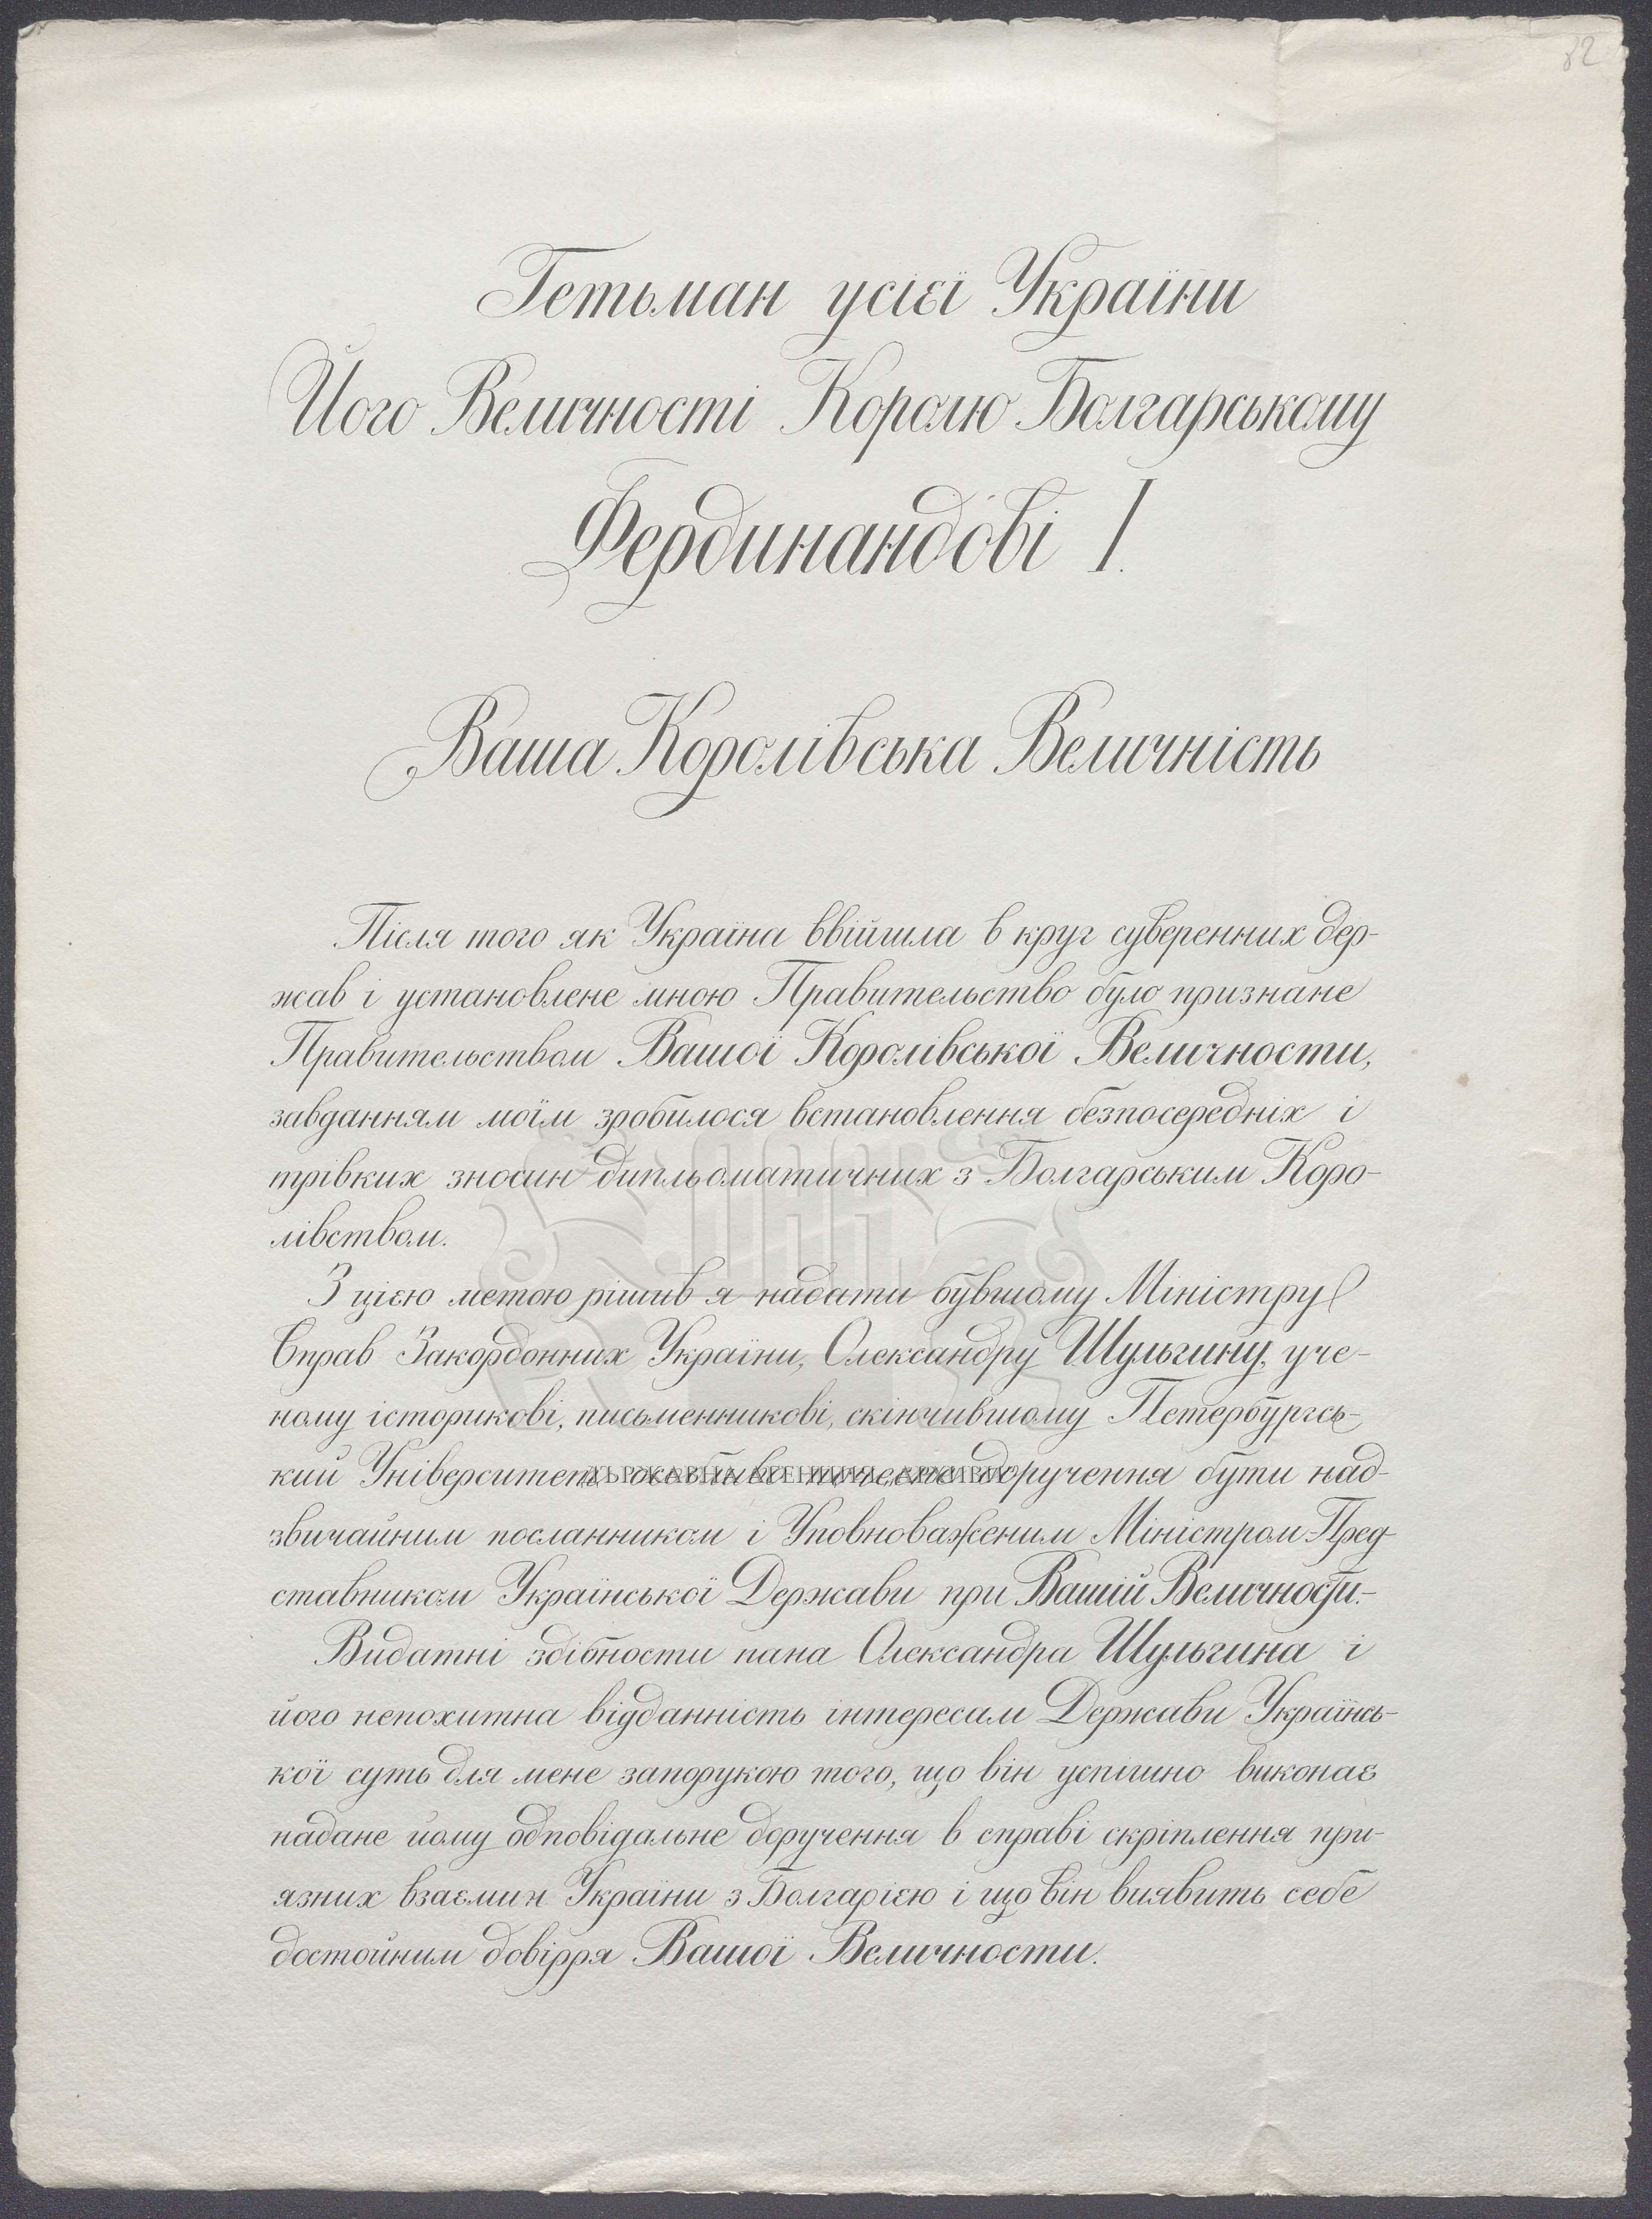 82
Гетьман усієї України
Його Величності Королю Болгарському
Фердинандові I.
Ваша Королівська Величність
Після того як Україна ввійшла в круг суверенних дер-
жав і установлене мною Правительство було признане
Правительством Вашої Королівської Величности,
завданням моїм зробилося встановлення безпосередніх і
трівких зносин дипльоматичних з Болгарським Коро-
лівством.
З цією метою рішив я надати бувшому Міністру
Справ Закордонних України, Олександру Шульгину, уче-
ному історикові, письменникові, скінчившому Петербургсь-
кий Університет особливо почесне доручення бути над-
звичайним посланником і Уповноваженим Міністром-Пред-
ставником Української Держави при Вашій Величности.-
Видатні здібности пана Олександра Шульгина і
його непохитна відданність інтересам Держави Українсь-
кої суть для мене запорукою того, що він успішно виконає
надане йому одповідальне доручення в справі скріплення при-
язних взаємин України з Болгарією і що він виявить себе
достойним довірря Вашої Величности.
ДЪРЖАВНА АГЕНЦИЯ "АРХИВИ"